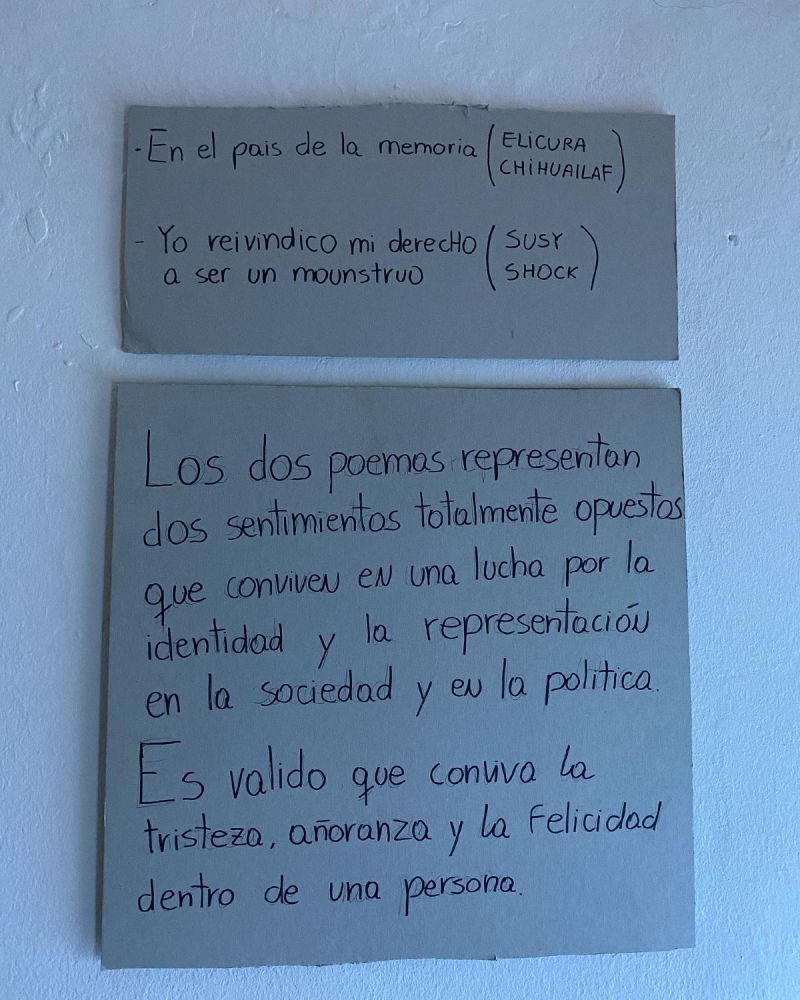 - En el pais de la memoria (ELICURA
CHIHUAILAF)
- Yo reivindico mi derecHo (SUSY
a ser un mounstruo SHOCK)
Los dos poemas representan
dos sentimientos totalmente opuestos
que conviven en una lucha por la
identidad y la representación
en la sociedad y en la politica.
Es valido que conviva la
tristeza, añoranza y la Felicidad
dentro de una persona.